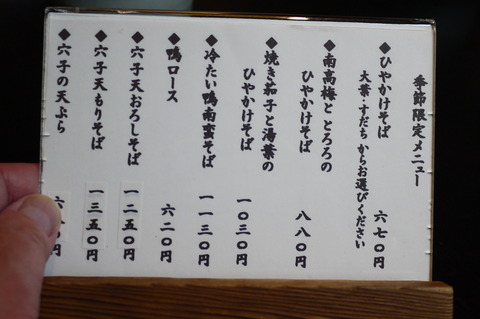 季節限定メニュー
◆ひやかけそば 六七〇円
大葉・すだちからお選びください
◆南高梅ととろろの
ひやかけそば 八八〇円
◆焼き茄子と湯葉の
ひやかけそば 一〇三〇円
◆冷たい鴨南蛮そば 一一三〇円
◆鴨ロース 六二〇円
◆穴子天おろしそば 一二五〇円
◆穴子天もりそば 一三五〇円
◆穴子の天ぷら